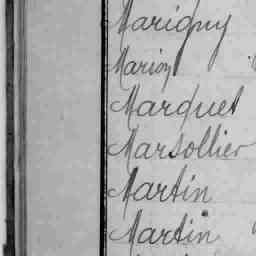 Marigny
Marion
Marquet
Marsollier
Martin
Martin